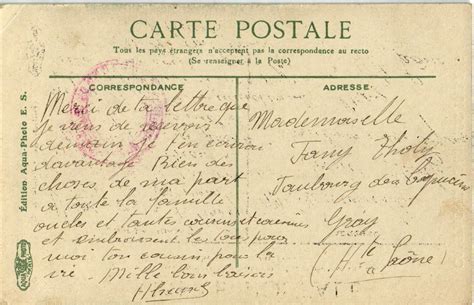 CARTE POSTALE
Tous les pays étrangers n'acceptent pas la correspondance au recto
(Se renseigner à la Poste)
CORRESPONDANCE
ADRESSE
Merci de ta lettre que
je viens de recevoir
demain je t'en
davantage Bien des
choses de ma part
a toute la famille
oncles et toutes cousines
et embrassent les tous pour
moi ton cousin pour la
vie Mille bons baisers
Mademoiselle
Fany
Faubourg des Capucins
Gray
(Hte Saône)
Edition Aqua-Photo E. S.